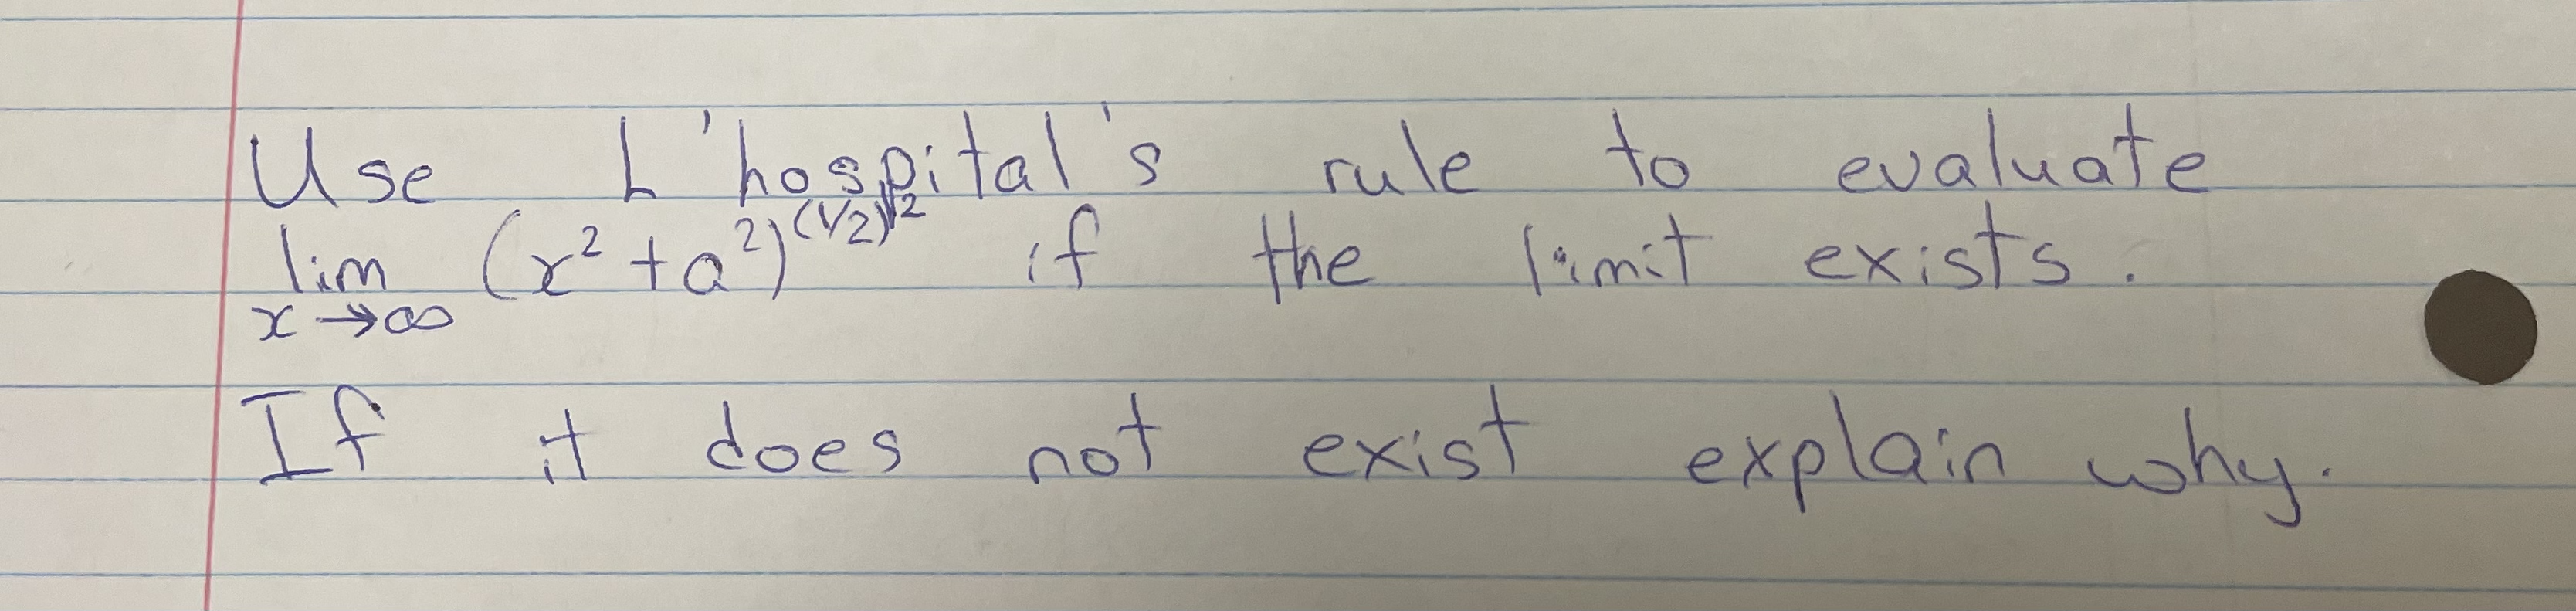 Use L'hospital's rule to evaluate
lim (x² + a²)^(1/2)^2 if the limit exists.
x → ∞
If it does not exist explain why.